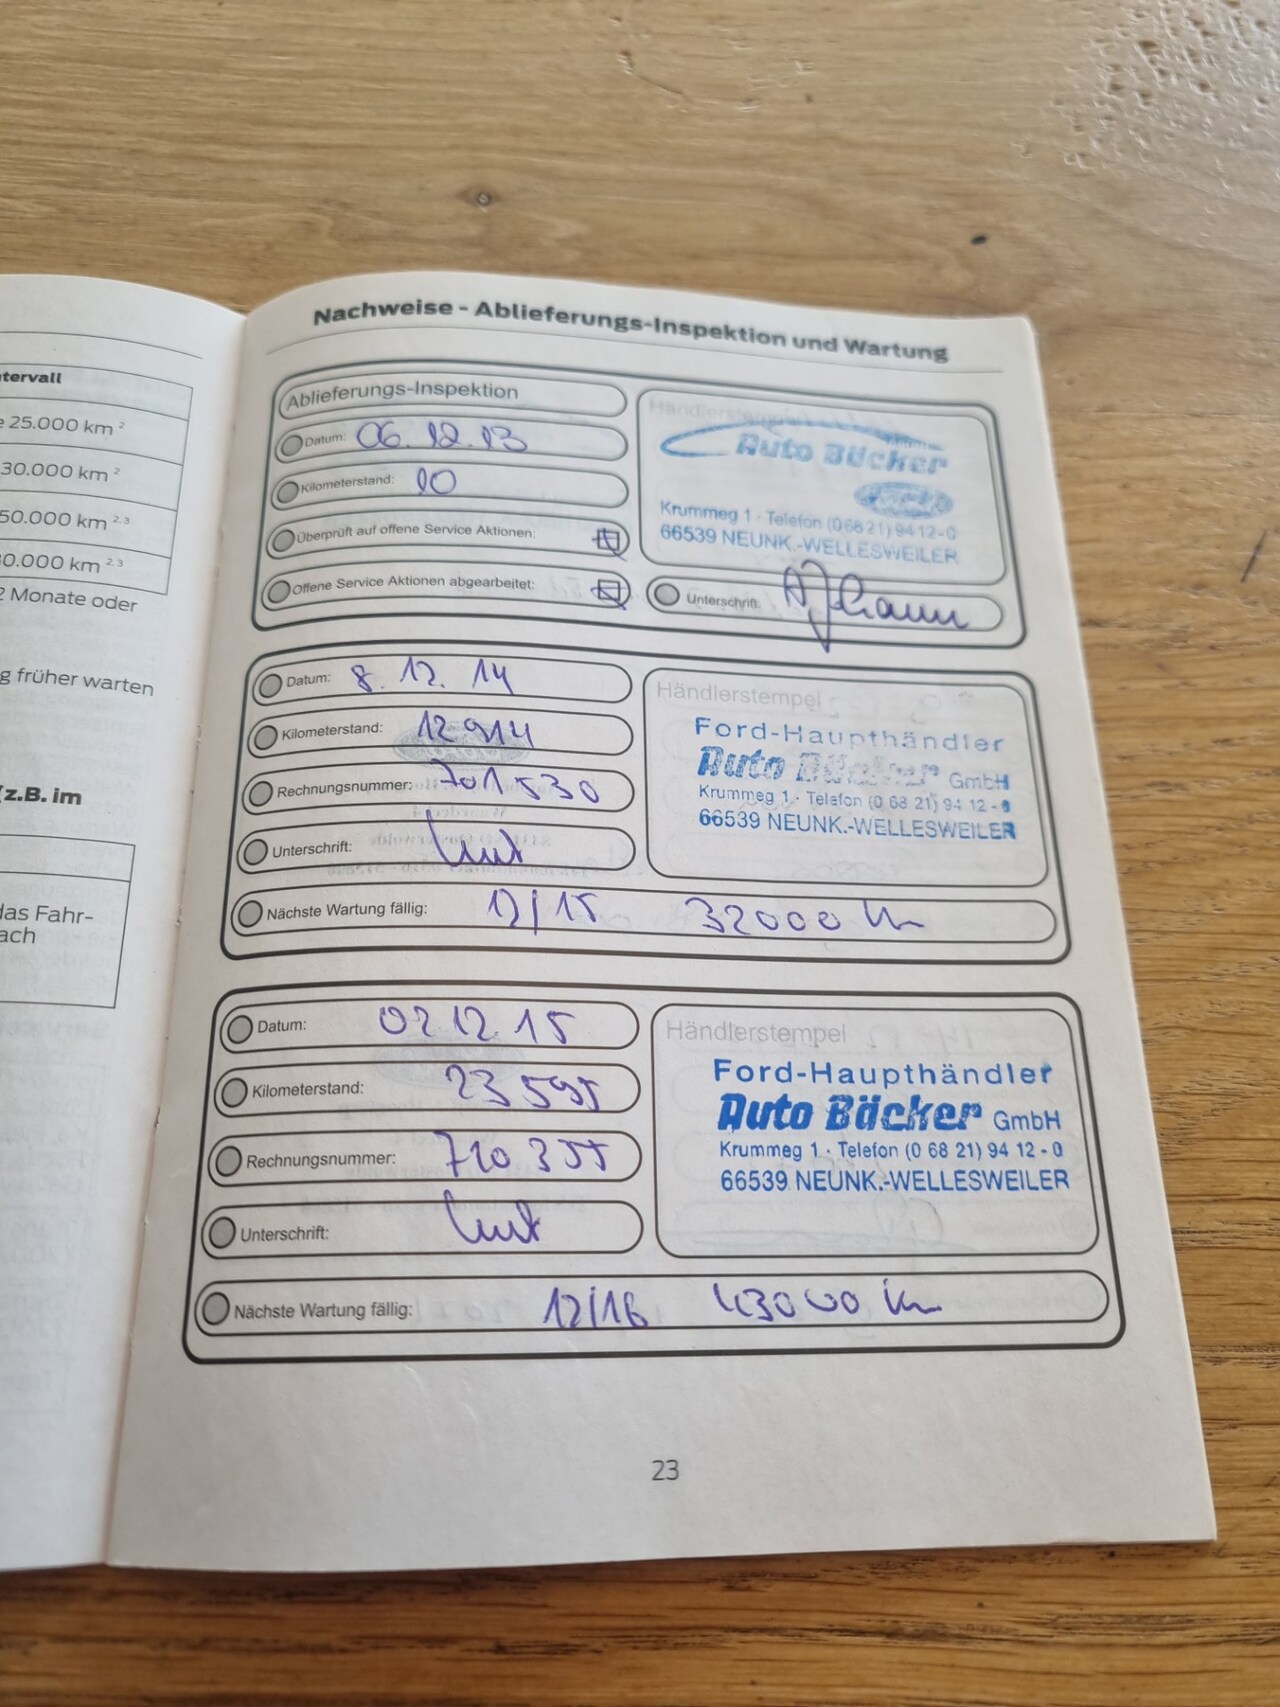 tervall
e 25.000 km ²
30.000 km ²
50.000 km ²,³
0.000 km ²,³
2 Monate oder
g früher warten
(z.B. im
das Fahr-
ach
Nachweise - Ablieferungs-Inspektion und Wartung
Ablieferungs-Inspektion
Datum: 06.12.13
Kilometerstand: 10
Überprüft auf offene Service Aktionen:
Offene Service Aktionen abgearbeitet:
Händlerstempel
Auto Bäcker
Krummeg 1 · Telefon (0 68 21) 94 12-0
66539 NEUNK.-WELLESWEILER
Unterschrift:
Datum: 8.12.14
Kilometerstand: 12914
Rechnungsnummer: 701530
Unterschrift:
Händlerstempel
Ford-Haupthändler
Auto Bäcker GmbH
Krummeg 1 · Telefon (0 68 21) 94 12 - 0
66539 NEUNK.-WELLESWEILER
Nächste Wartung fällig: 12/15 32000 km
Datum: 02.12.15
Kilometerstand: 23595
Rechnungsnummer: 710355
Unterschrift:
Händlerstempel
Ford-Haupthändler
Auto Bäcker GmbH
Krummeg 1 · Telefon (0 68 21) 94 12 - 0
66539 NEUNK.-WELLESWEILER
Nächste Wartung fällig: 12/16 43000 km
23